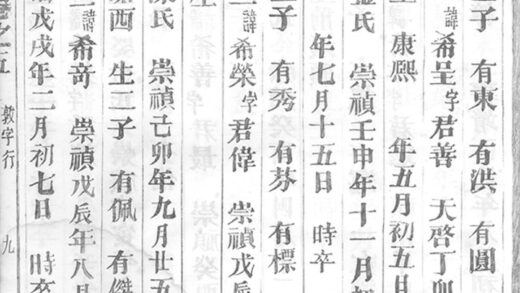 子 有東 有洪 有圓
諱希呈字君善 天啓丁卯
康熙 年五月初五日
氏 崇禎壬申年十一月初
年七月十五日 時卒
子 有秀 有芬 有標
諱希榮字君偉 崇禎戊辰
氏 崇禎己卯年九月廿五
西 生三子 有佩 有傑
諱希竒 崇禎戊辰年八月
戊戌年二月初七日 時卒
之五 敦字行 九